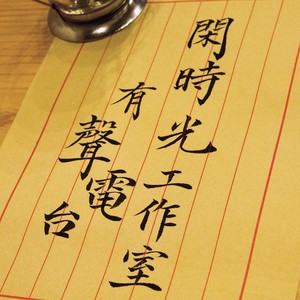 閑時光工作室
有聲電台